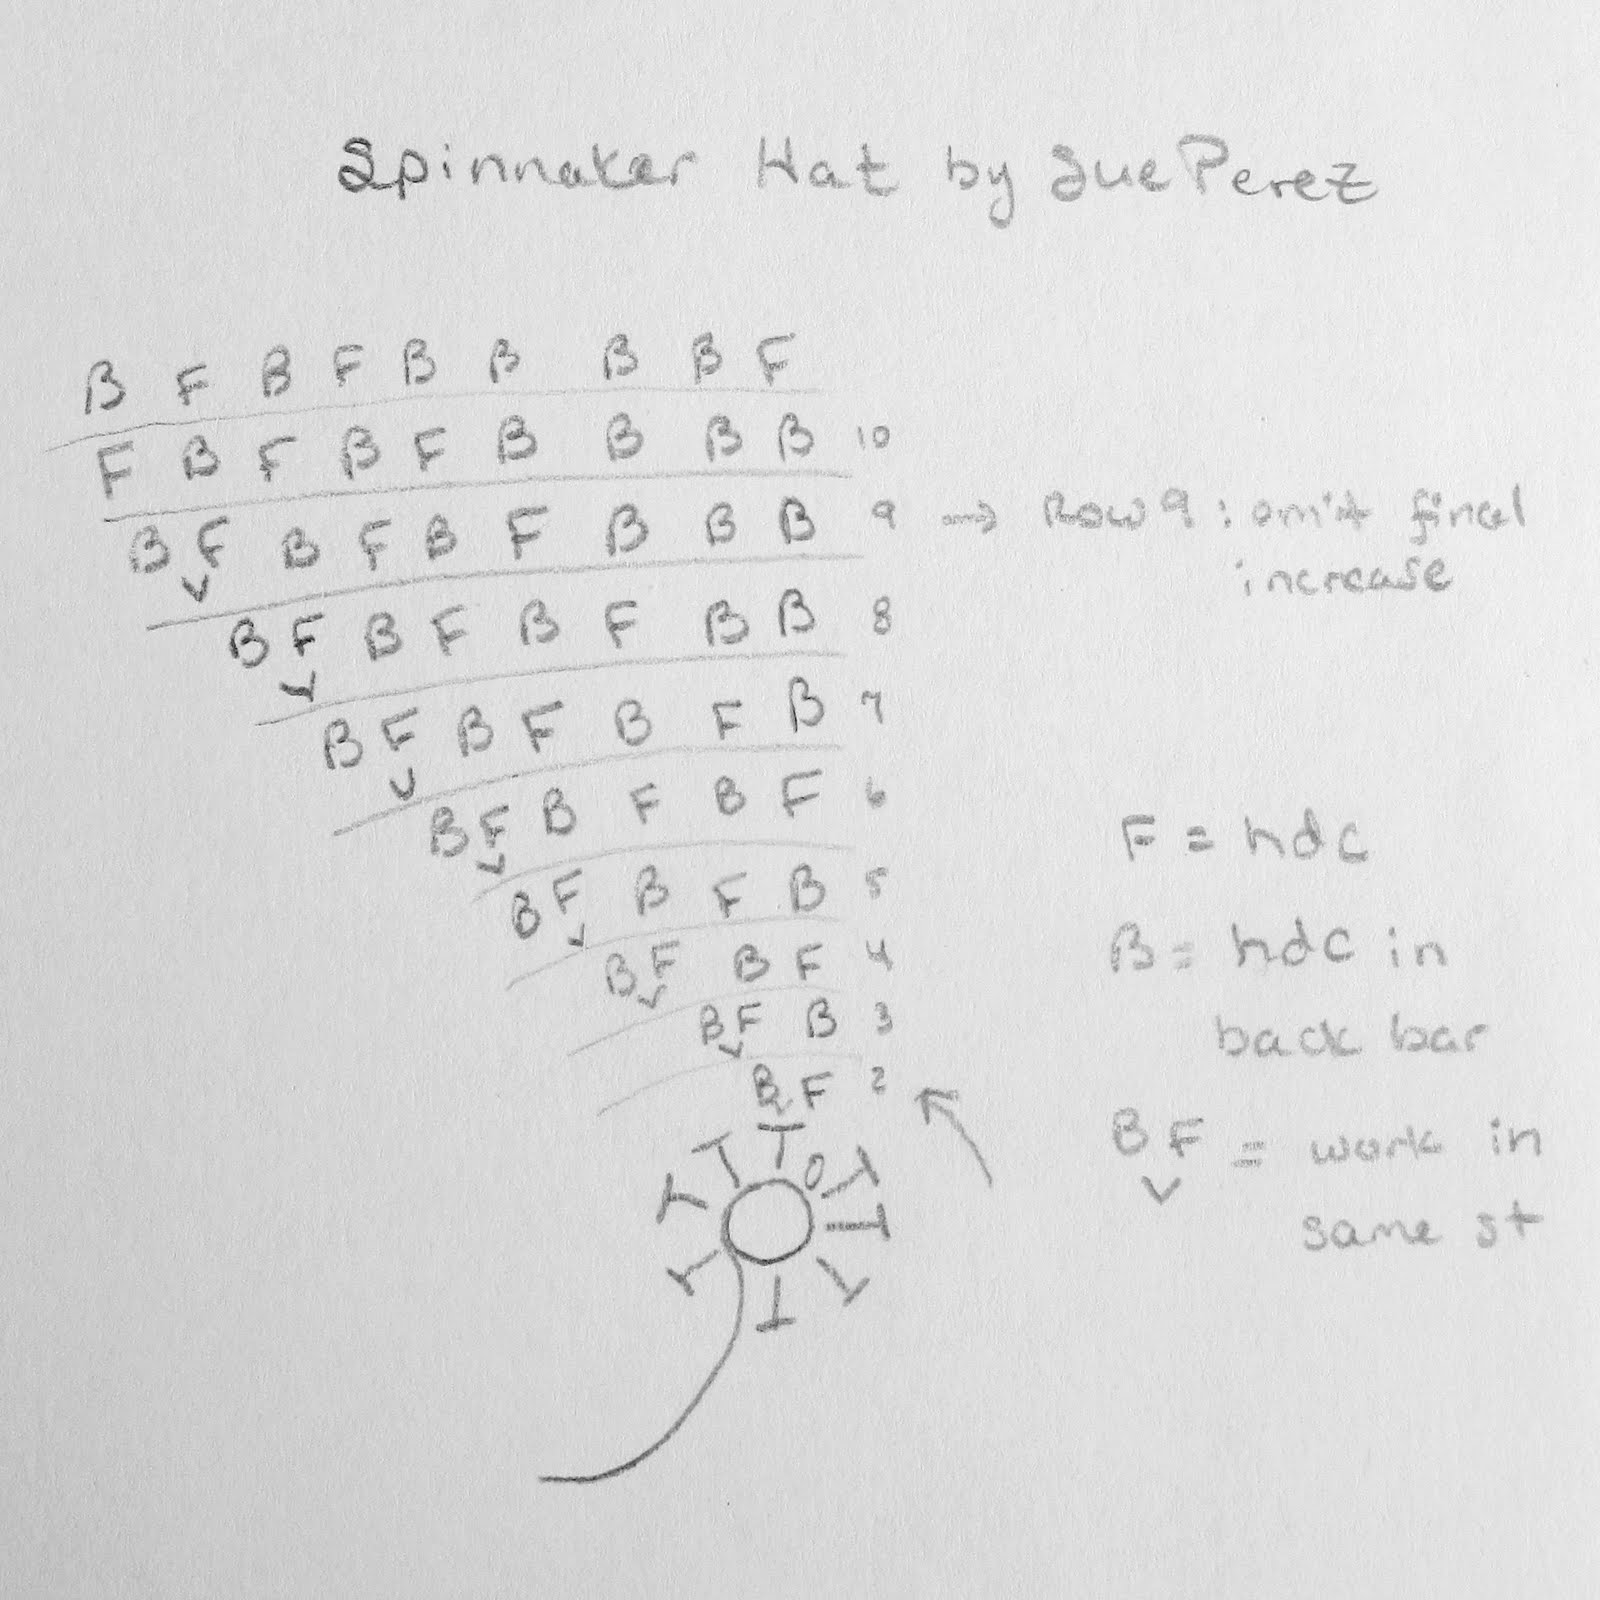 Spinnaker Hat by Sue Perez
B F B F B B B B F
F B F B F B B B B 10
B F B F B F B B B 9 → Row 9: omit final
increase
B F B F B F B B 8
B F B F B F B 7
B F B F B F 6
B F B F B 5
B F B F 4
B F B 3
B F 2
F = hdc
B = hdc in
back bar
B F = work in
same st